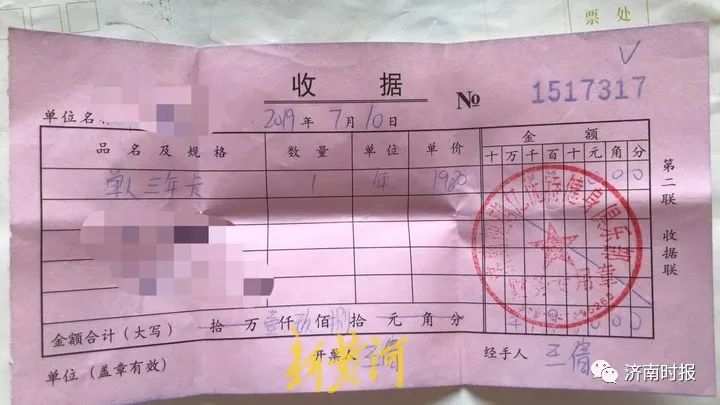 票 处
收 据
№ 1517317
单位名
2019年7月10日
品名及规格 数量 单位 单价 金额
十万千百十元角分
单人三年卡 1 年 1980 0 0 0
第二联 收据联
金额合计（大写） 拾 万壹仟玖佰捌拾 元 角 分
0 0 0
单位（盖章有效） 开票人 经手人
新黄河
济南时报